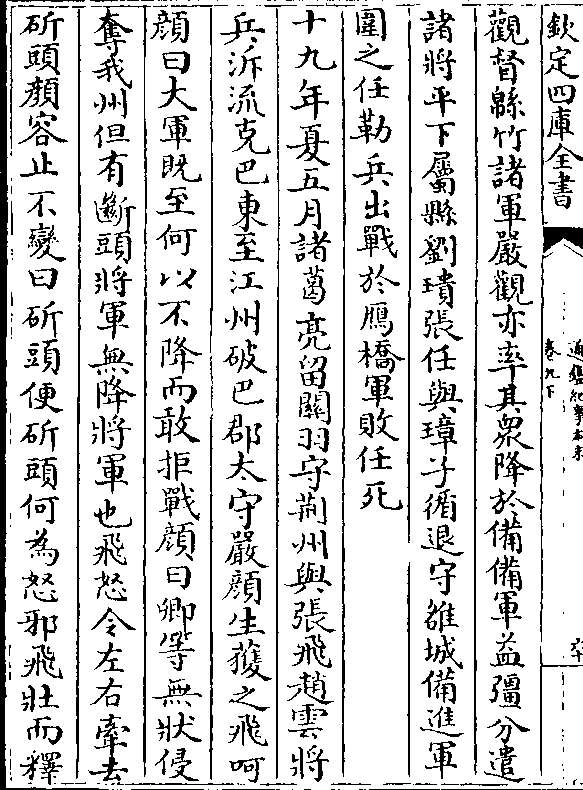 欽定四庫全書
通鑑紀事本末
卷九下
六十
觀督緜竹諸軍嚴觀亦率其衆降於備備軍益彊分遣
諸將平下屬縣劉璝張任與璋子循退守雒城備進軍
圍之任勒兵出戰於鴈橋軍敗任死
十九年夏五月諸葛亮留關羽守荆州與張飛趙雲將
兵泝流克巴東至江州破巴郡太守嚴顔生獲之飛呵
顔曰大軍既至何以不降而敢拒戰顔曰卿等無狀侵
奪我州但有斷頭將軍無降將軍也飛怒令左右牽去
斫頭顔容止不變曰斫頭便斫頭何為怒邪飛壯而釋